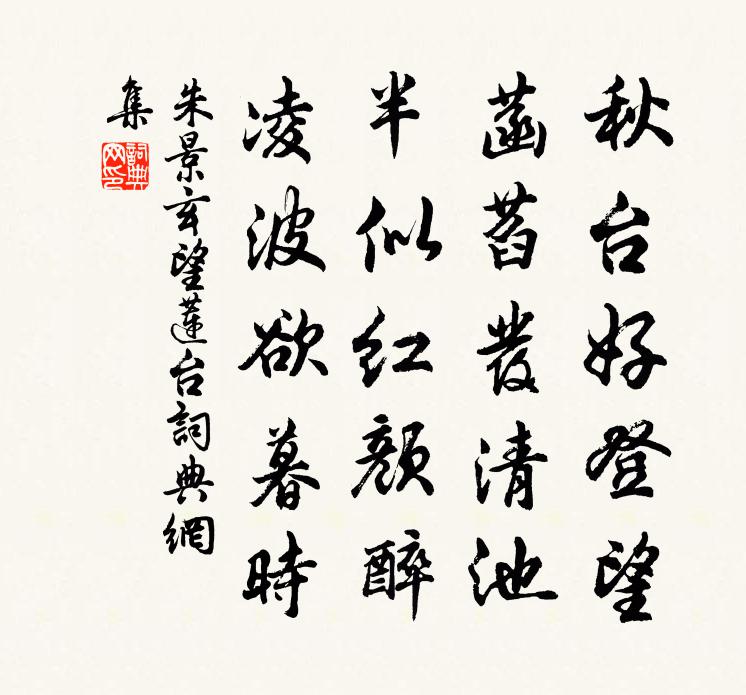 秋台好登望
菡萏發清池
半似红颜醉
凌波欲暮時
朱景玄望蓮台詞典網
集
詞典
网印